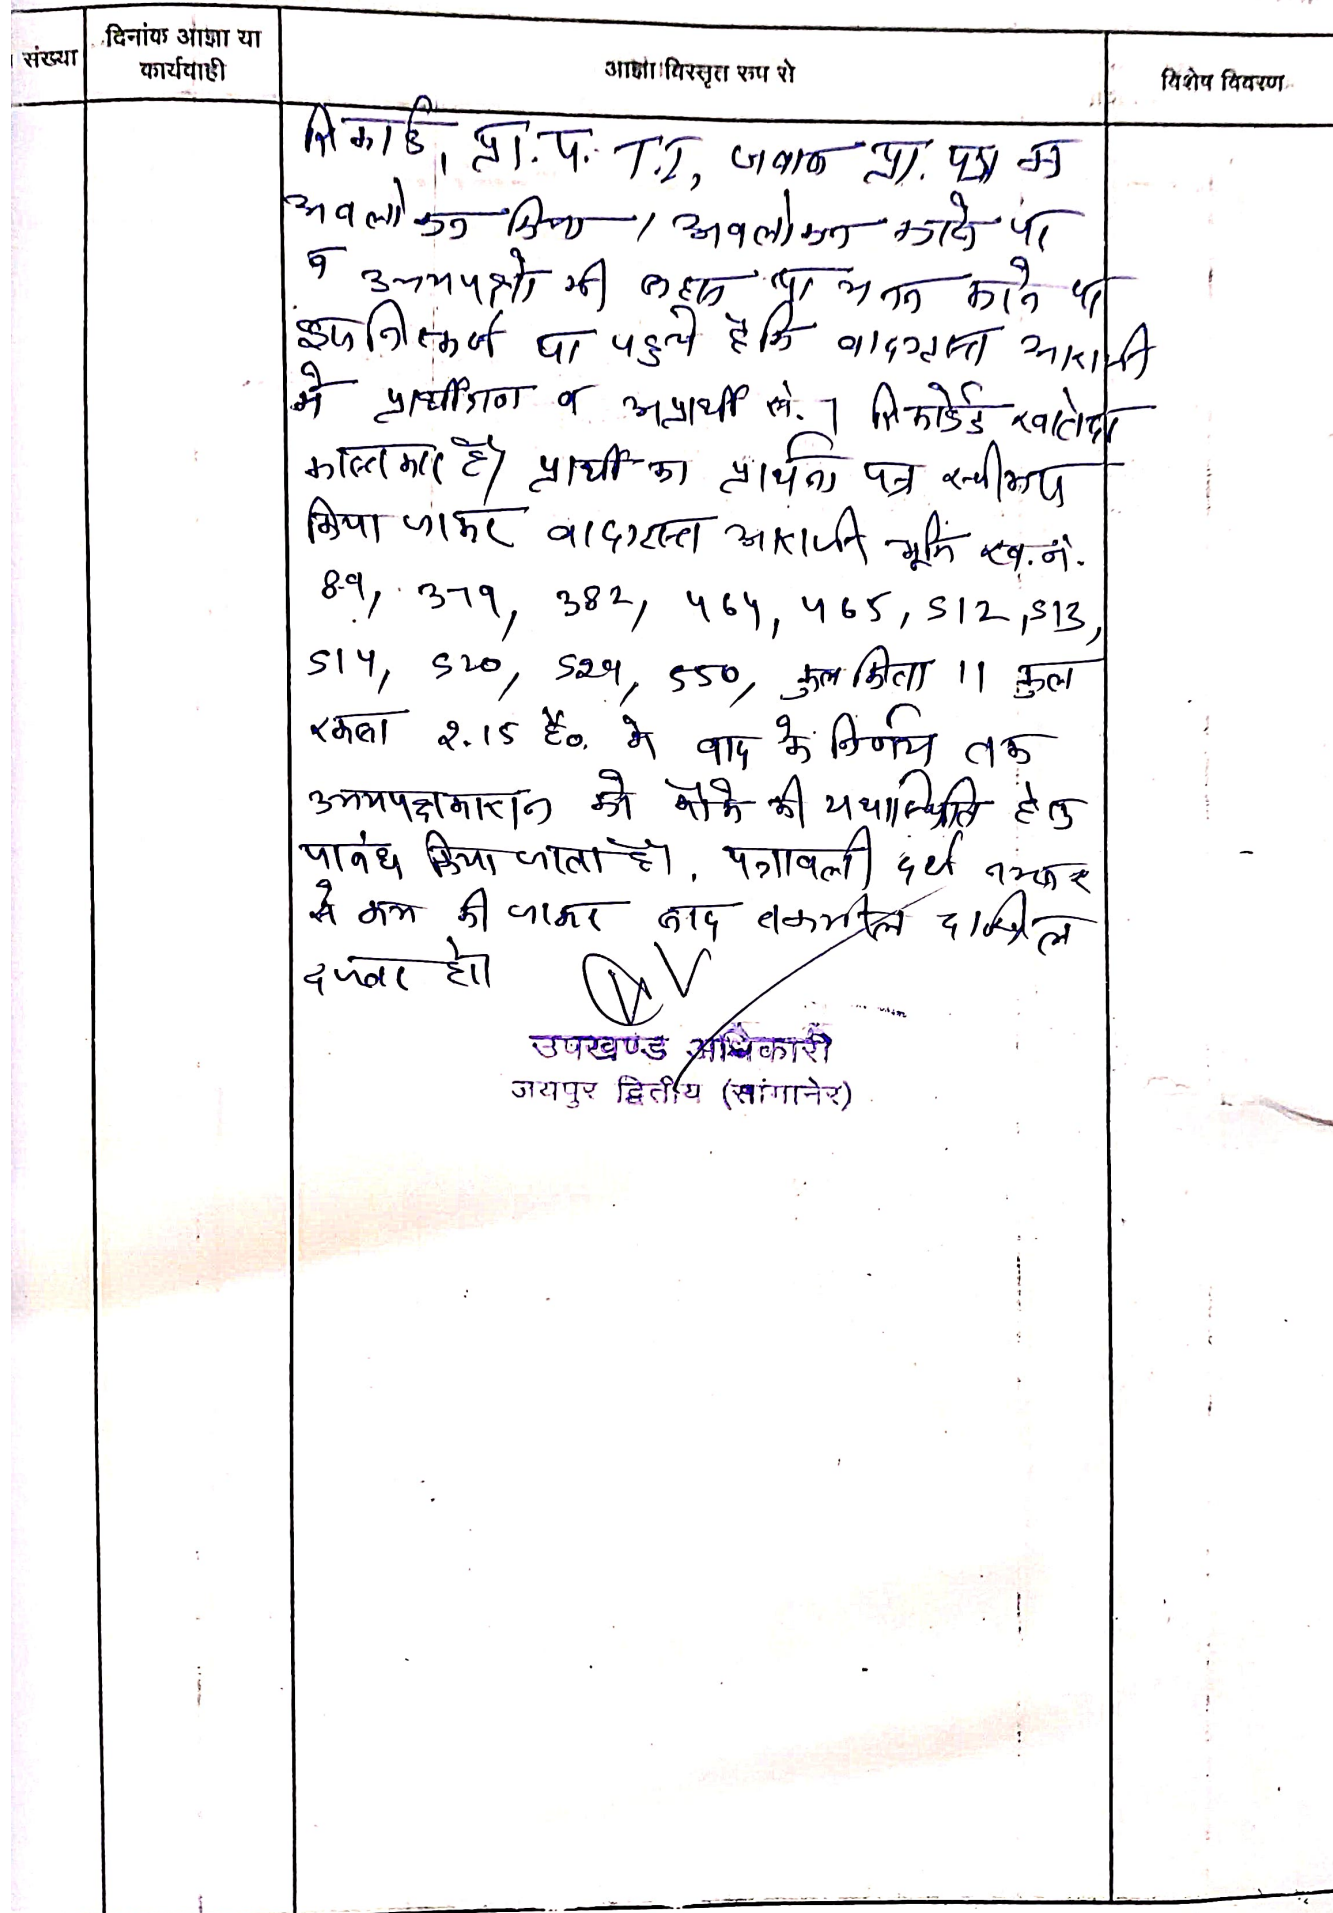 संख्या
दिनांक आज्ञा या
कार्यवाही
आज्ञा विस्तृत रूप से
विशेष विवरण
रिकार्ड, प्रा.प. T.I, जवाब प्रा. पत्र का
अवलोकन किया। अवलोकन करने पर
व उभयपक्षो की बहस पर मनन करने पर
इस निष्कर्ष पर पहुचे है कि वादग्रस्त आराजी
मे प्रार्थीगण व अप्रार्थी सं. 7 रिकोर्डेड खातेदार
काश्तकार है। प्रार्थी का प्रार्थना पत्र स्वीकार
किया जाकर वादग्रस्त आराजी भूमि ख.नं.
89, 379, 382, 464, 465, 512, 513,
514, 520, 524, 550, कुल किता 11 कुल
रकबा 2.15 है०. मे वाद के निर्णय तक
उभयपक्षकारान को मौके की यथास्थिति हेतु
पाबंध किया जाता है। पत्रावली दर्ज नम्बर
से कम की जाकर बाद तकमील दाखिल
दफ्तर हो।
उपखण्ड अधिकारी
जयपुर द्वितीय (सांगानेर)